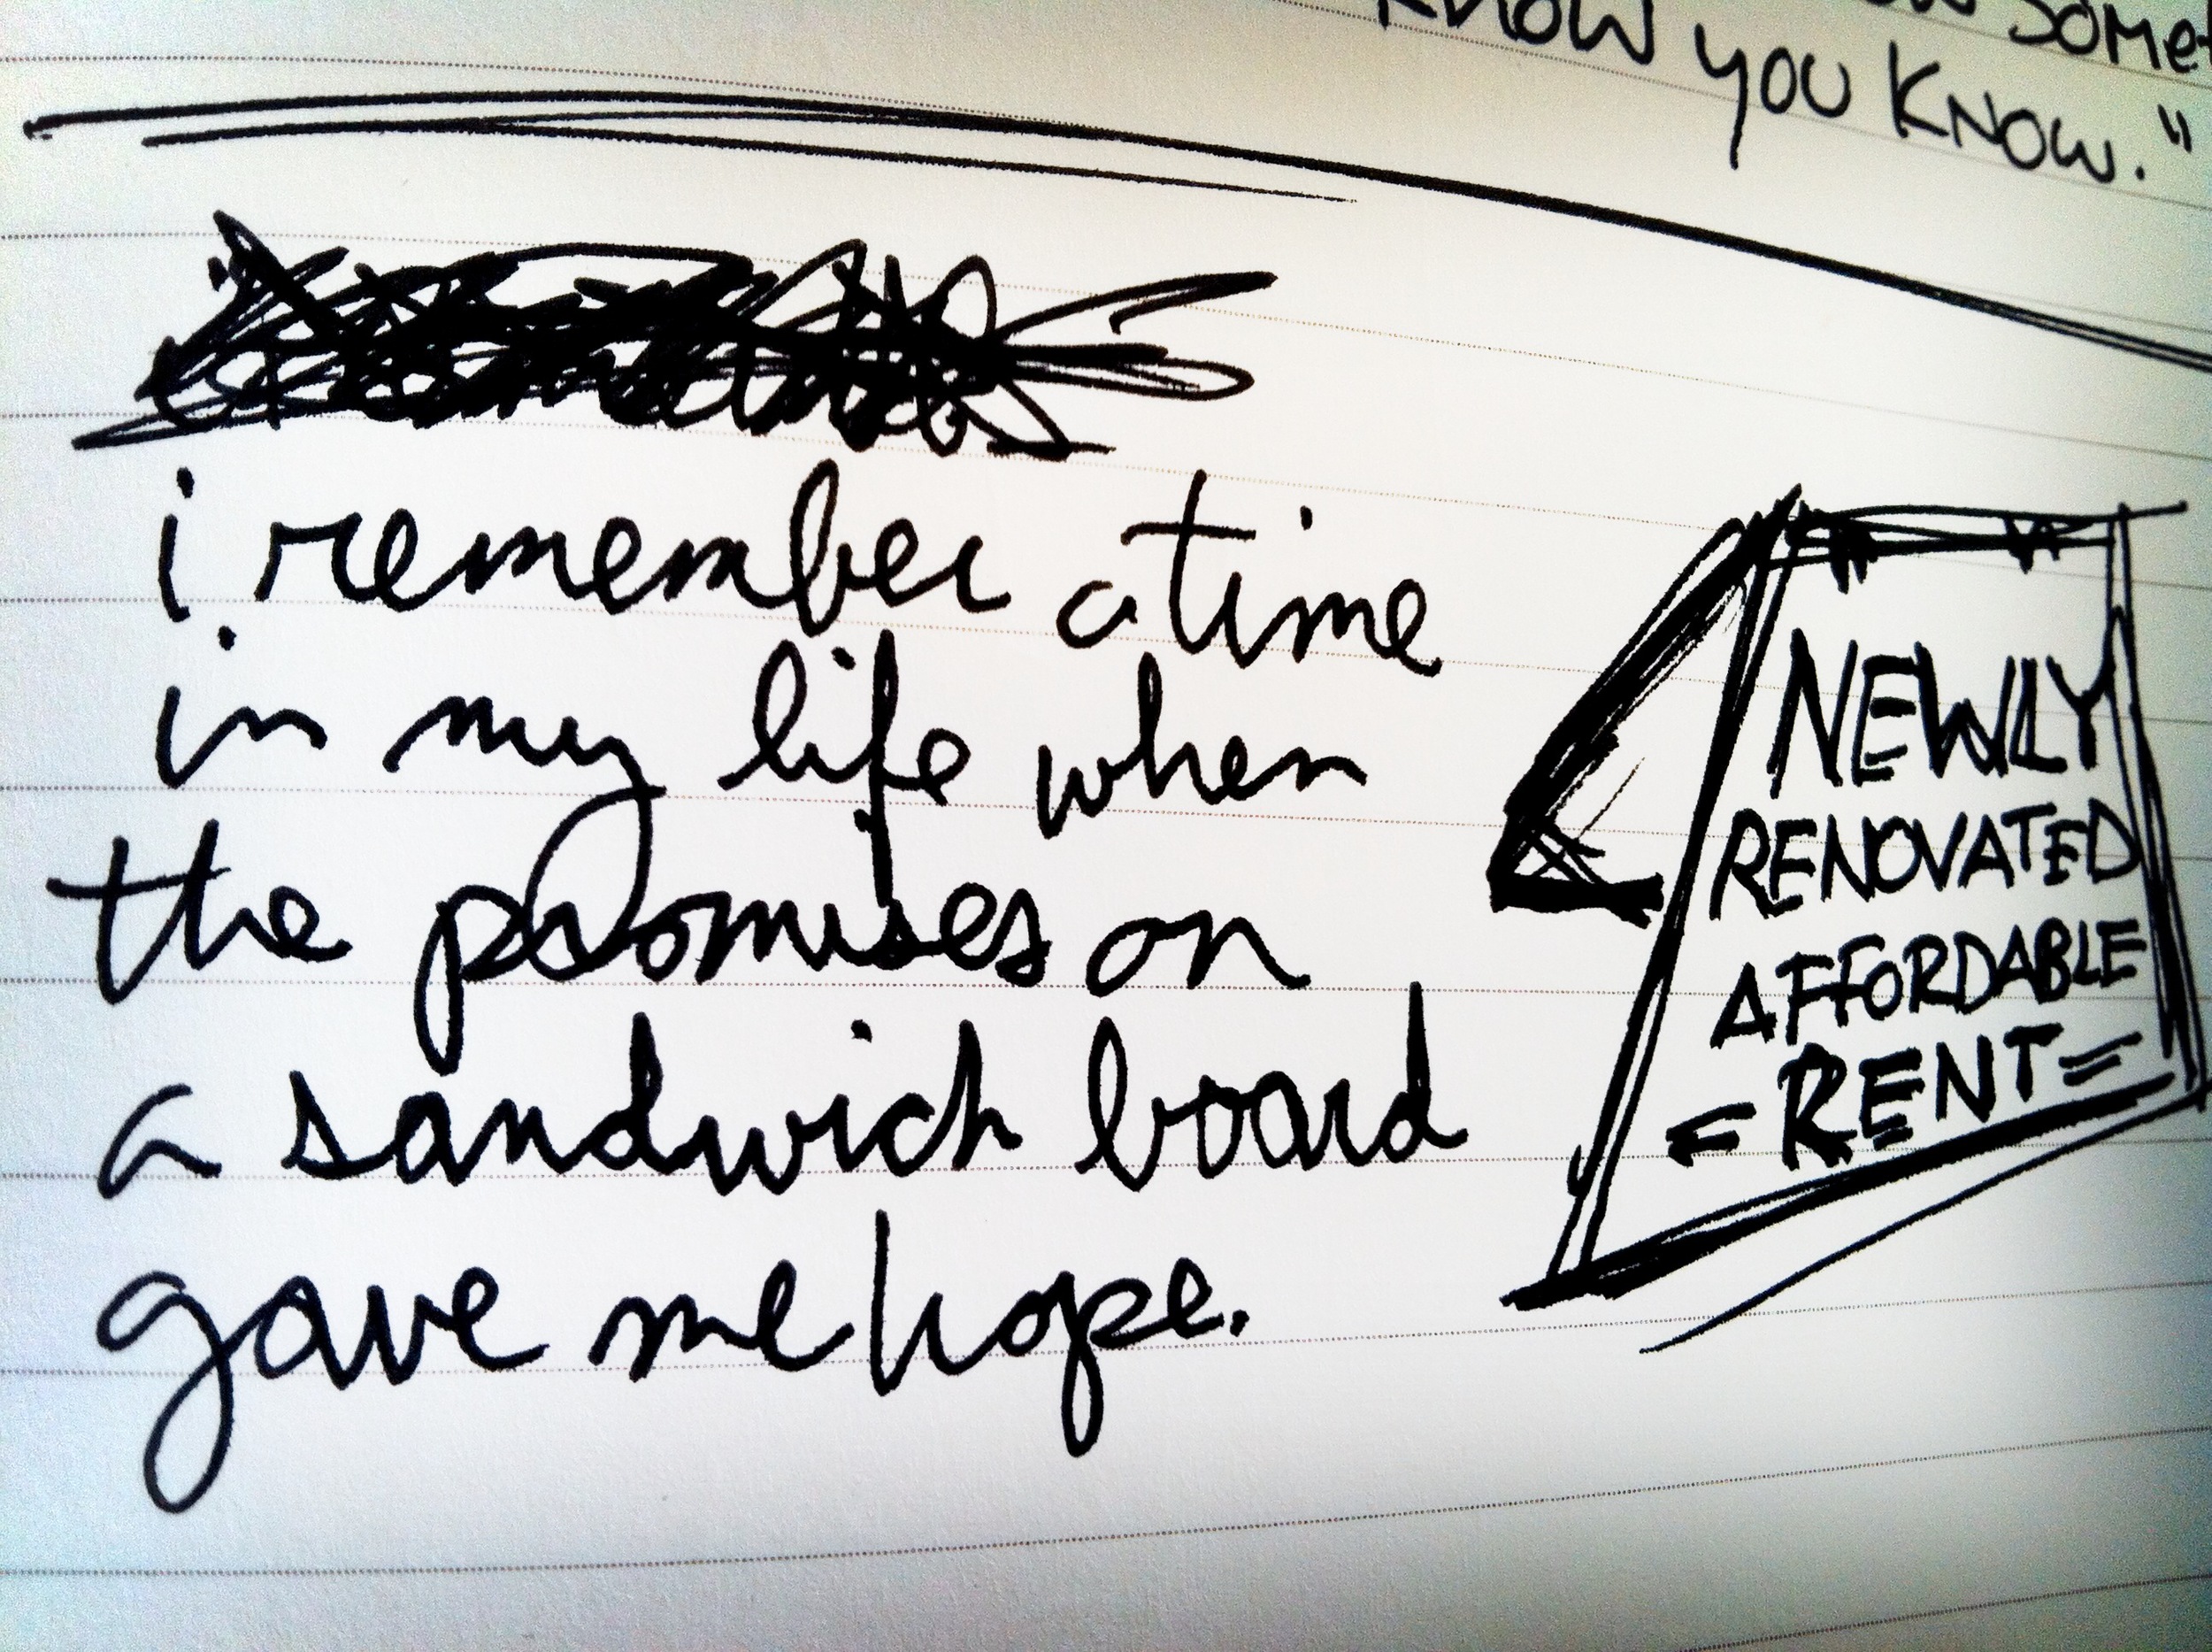 KNOW YOU KNOW."
i remember a time
in my life when
the promises on
a sandwich board
gave me hope.
NEWLY
RENOVATED
AFFORDABLE
=RENT=